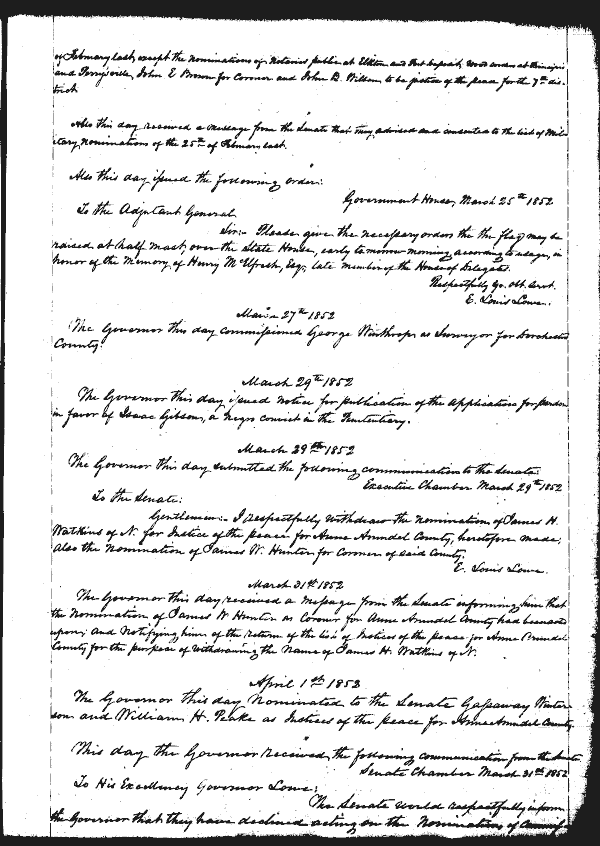 of February last, except the nominations of Notaries public at Elkton and Port Deposit, wood corders at Principio
and Perryville, John E Brown for Corroner and John B. Willem to be justice of the peace for the 7th dis-
trict
Also this day received a message from the Senate that they advised and consented to the list of Mil-
itary nominations of the 25th of February last.
Also this day issued the following order:
Government House, March 25th 1852
To the Adjutant General
Sir:- Please give the necessary orders the the flag may be
raised at half mast, over the State House, early tomorrow morning according to usage, in
honor of the Memory of Henry McElfresh, Esq; late member of the House of Delegates.
Respectfully Yo. obt. Servt.
E. Louis Lowe.
March 27th 1852
The Governor this day commissioned George Winthrop as Surveyor for Dorchester
County.
March 29th 1852
The Governor this day issued notice for publication of the Application for pardon
in favor of Isaac Gibson, a negro convict in the Penitentiary.
March 29th 1852
The Governor this day submitted the following communication to the Senate.
Executive Chamber March 29th 1852
To the Senate:
Gentlemen:- I respectfully withdraw the nomination of James H.
Watkins of N. for Justice of the peace for Anne Arundel County, heretofore made;
also the Nomination of James W. Hunter for Corroner of said County.
E. Louis Lowe.
March 31st 1852
The Governor this day received a Message from the Senate informing him that
the Nomination of James W Hunter as Coroner for Anne Arundel County had been acted
upon; and Notifying him of the return of the list of Justices of the peace for Anne Arundel
County for the purpose of withdrawing the Name of James H. Watkins of N.
April 1st 1852
The Governor this day Nominated to the Senate Gassaway Winter-
son and William H. Peake as Justices of the peace for Anne Arundel County
This day the Governor received the following communication from the Senate
Senate Chamber March 31st 1852
To His Excellency Governor Lowe;
The Senate would respectfully inform
the Governor that they have declined acting on the Nominations of